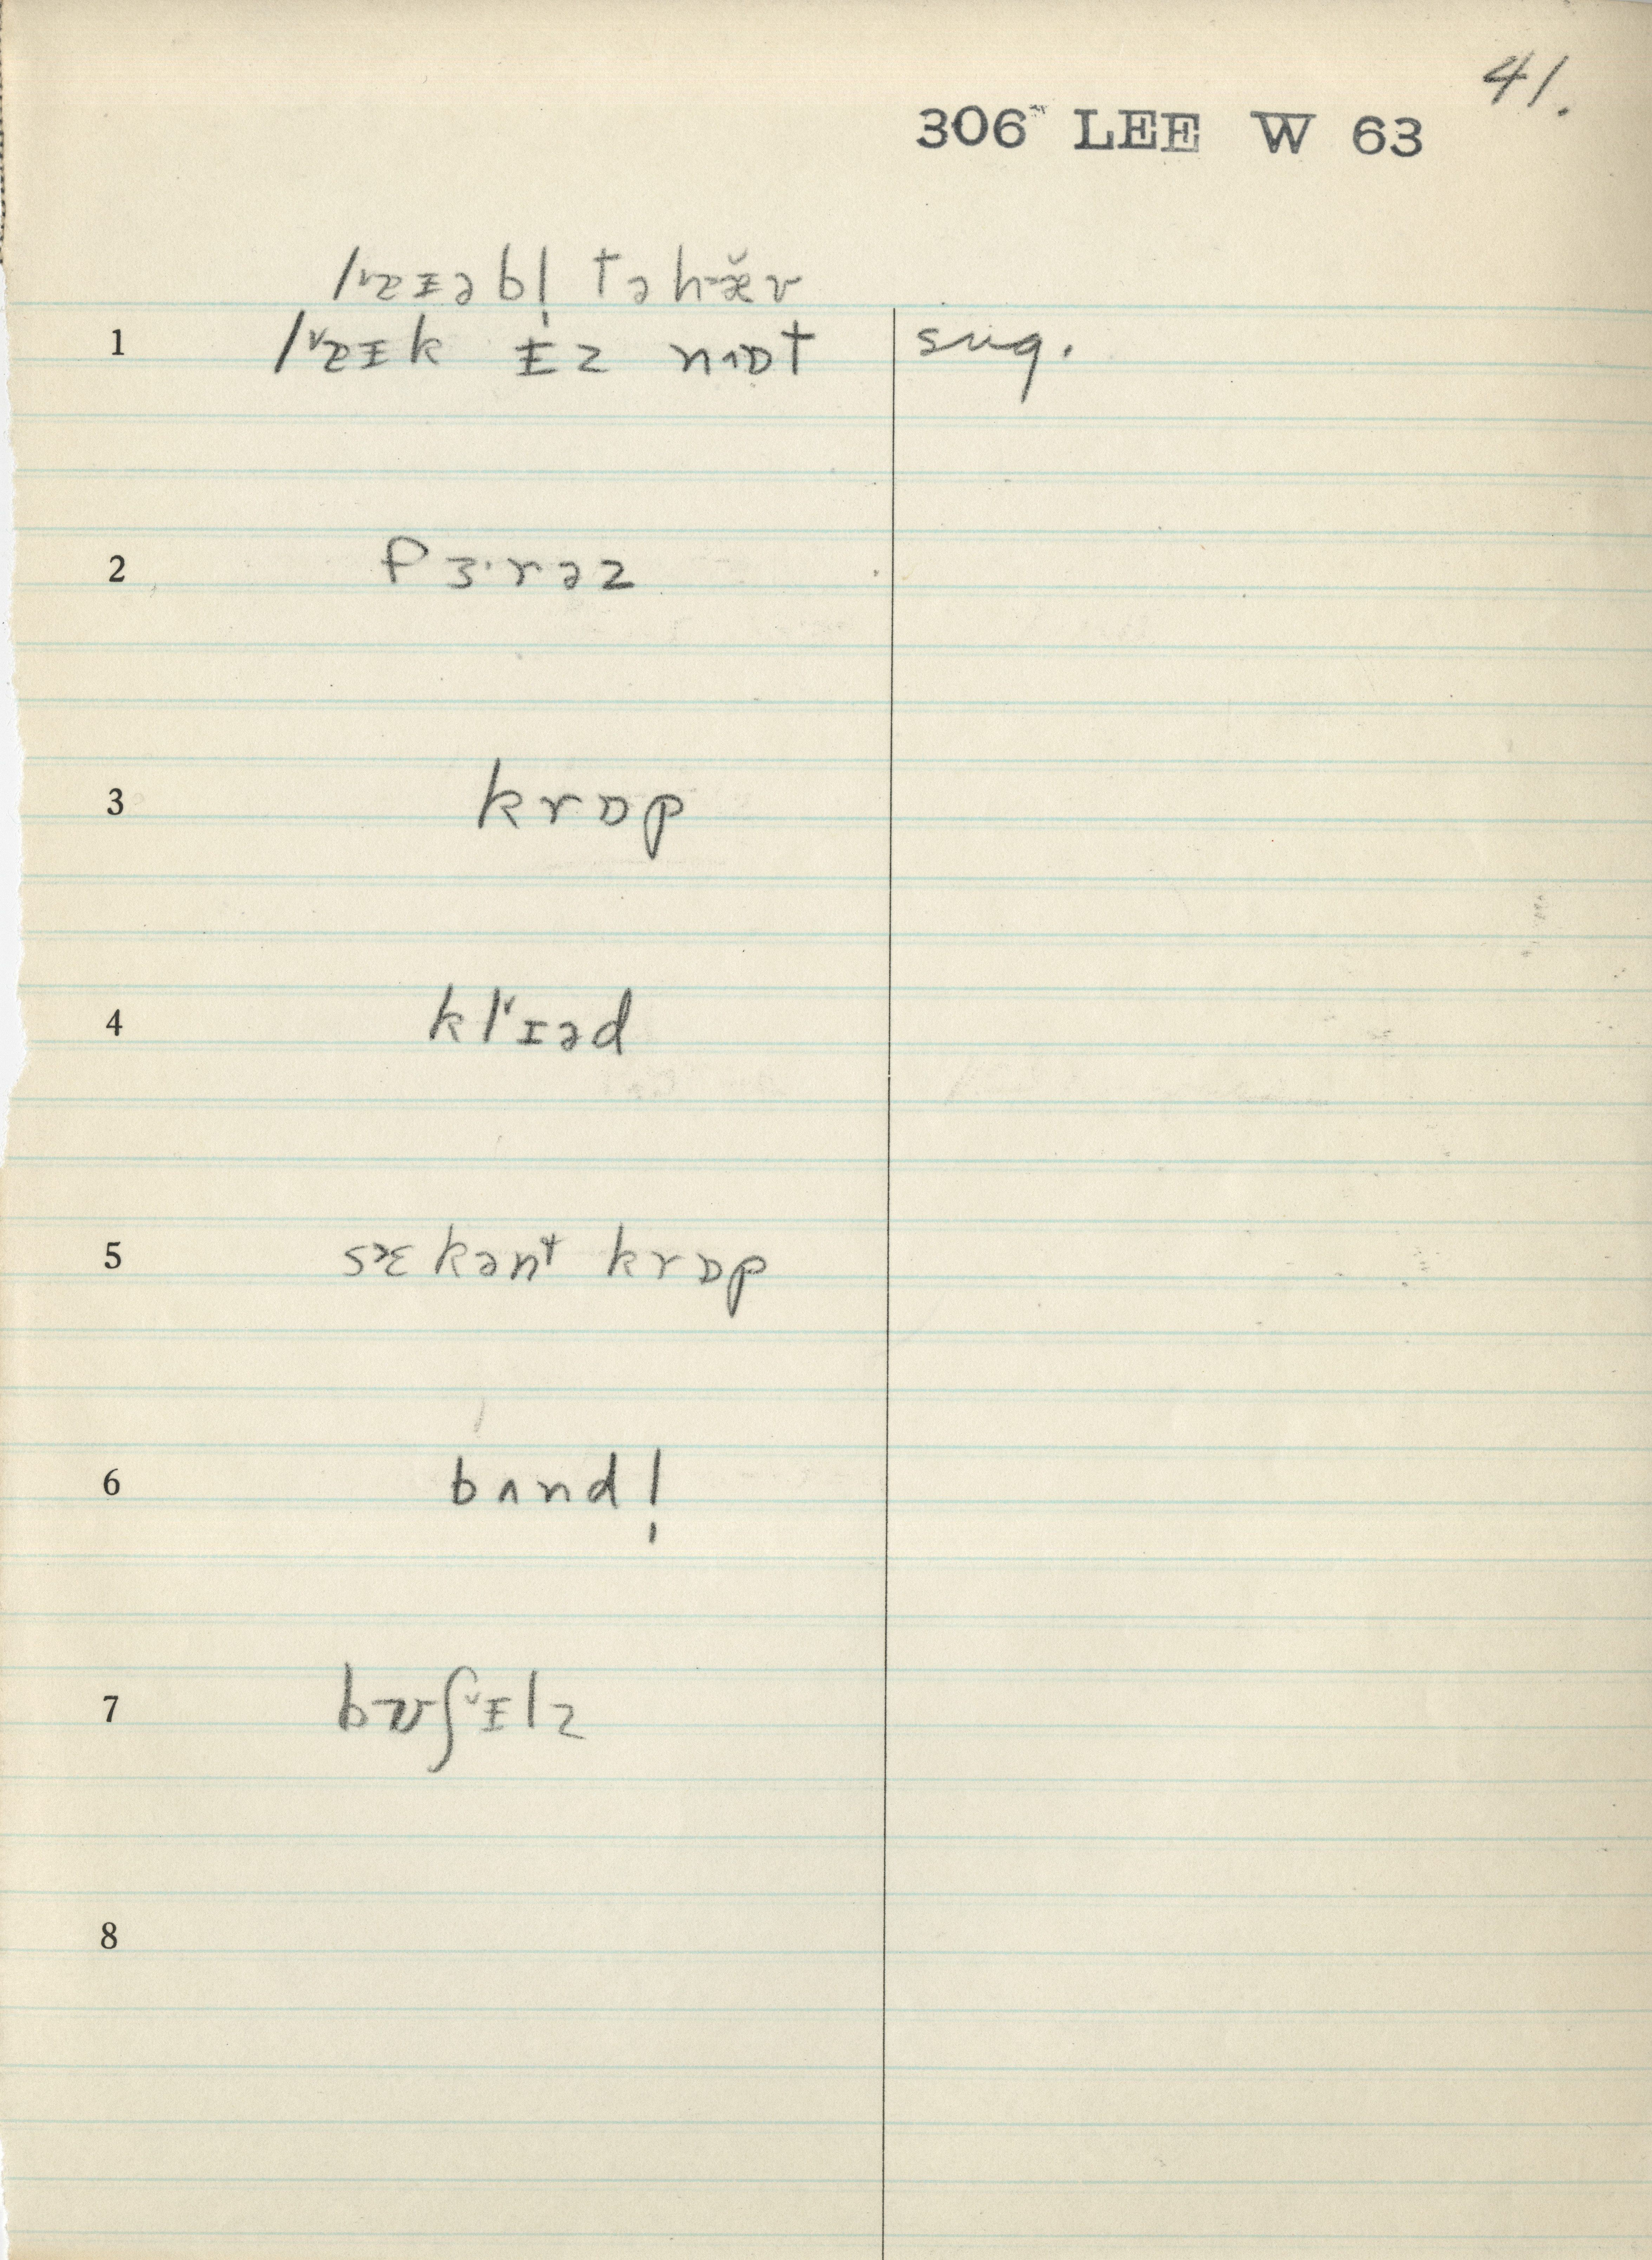 41.
306 LEE W 63
lᵛæɪəbl̩ tə hæ̆v
1 lᵛæɪk ɪz nɒt sug.
2 fɜ·rəz
3 krɒp
4 klᵛɪəd
5 sɛkənt krɒp
6 bʌndl̩
7 bʊʃᵛɪlz
8